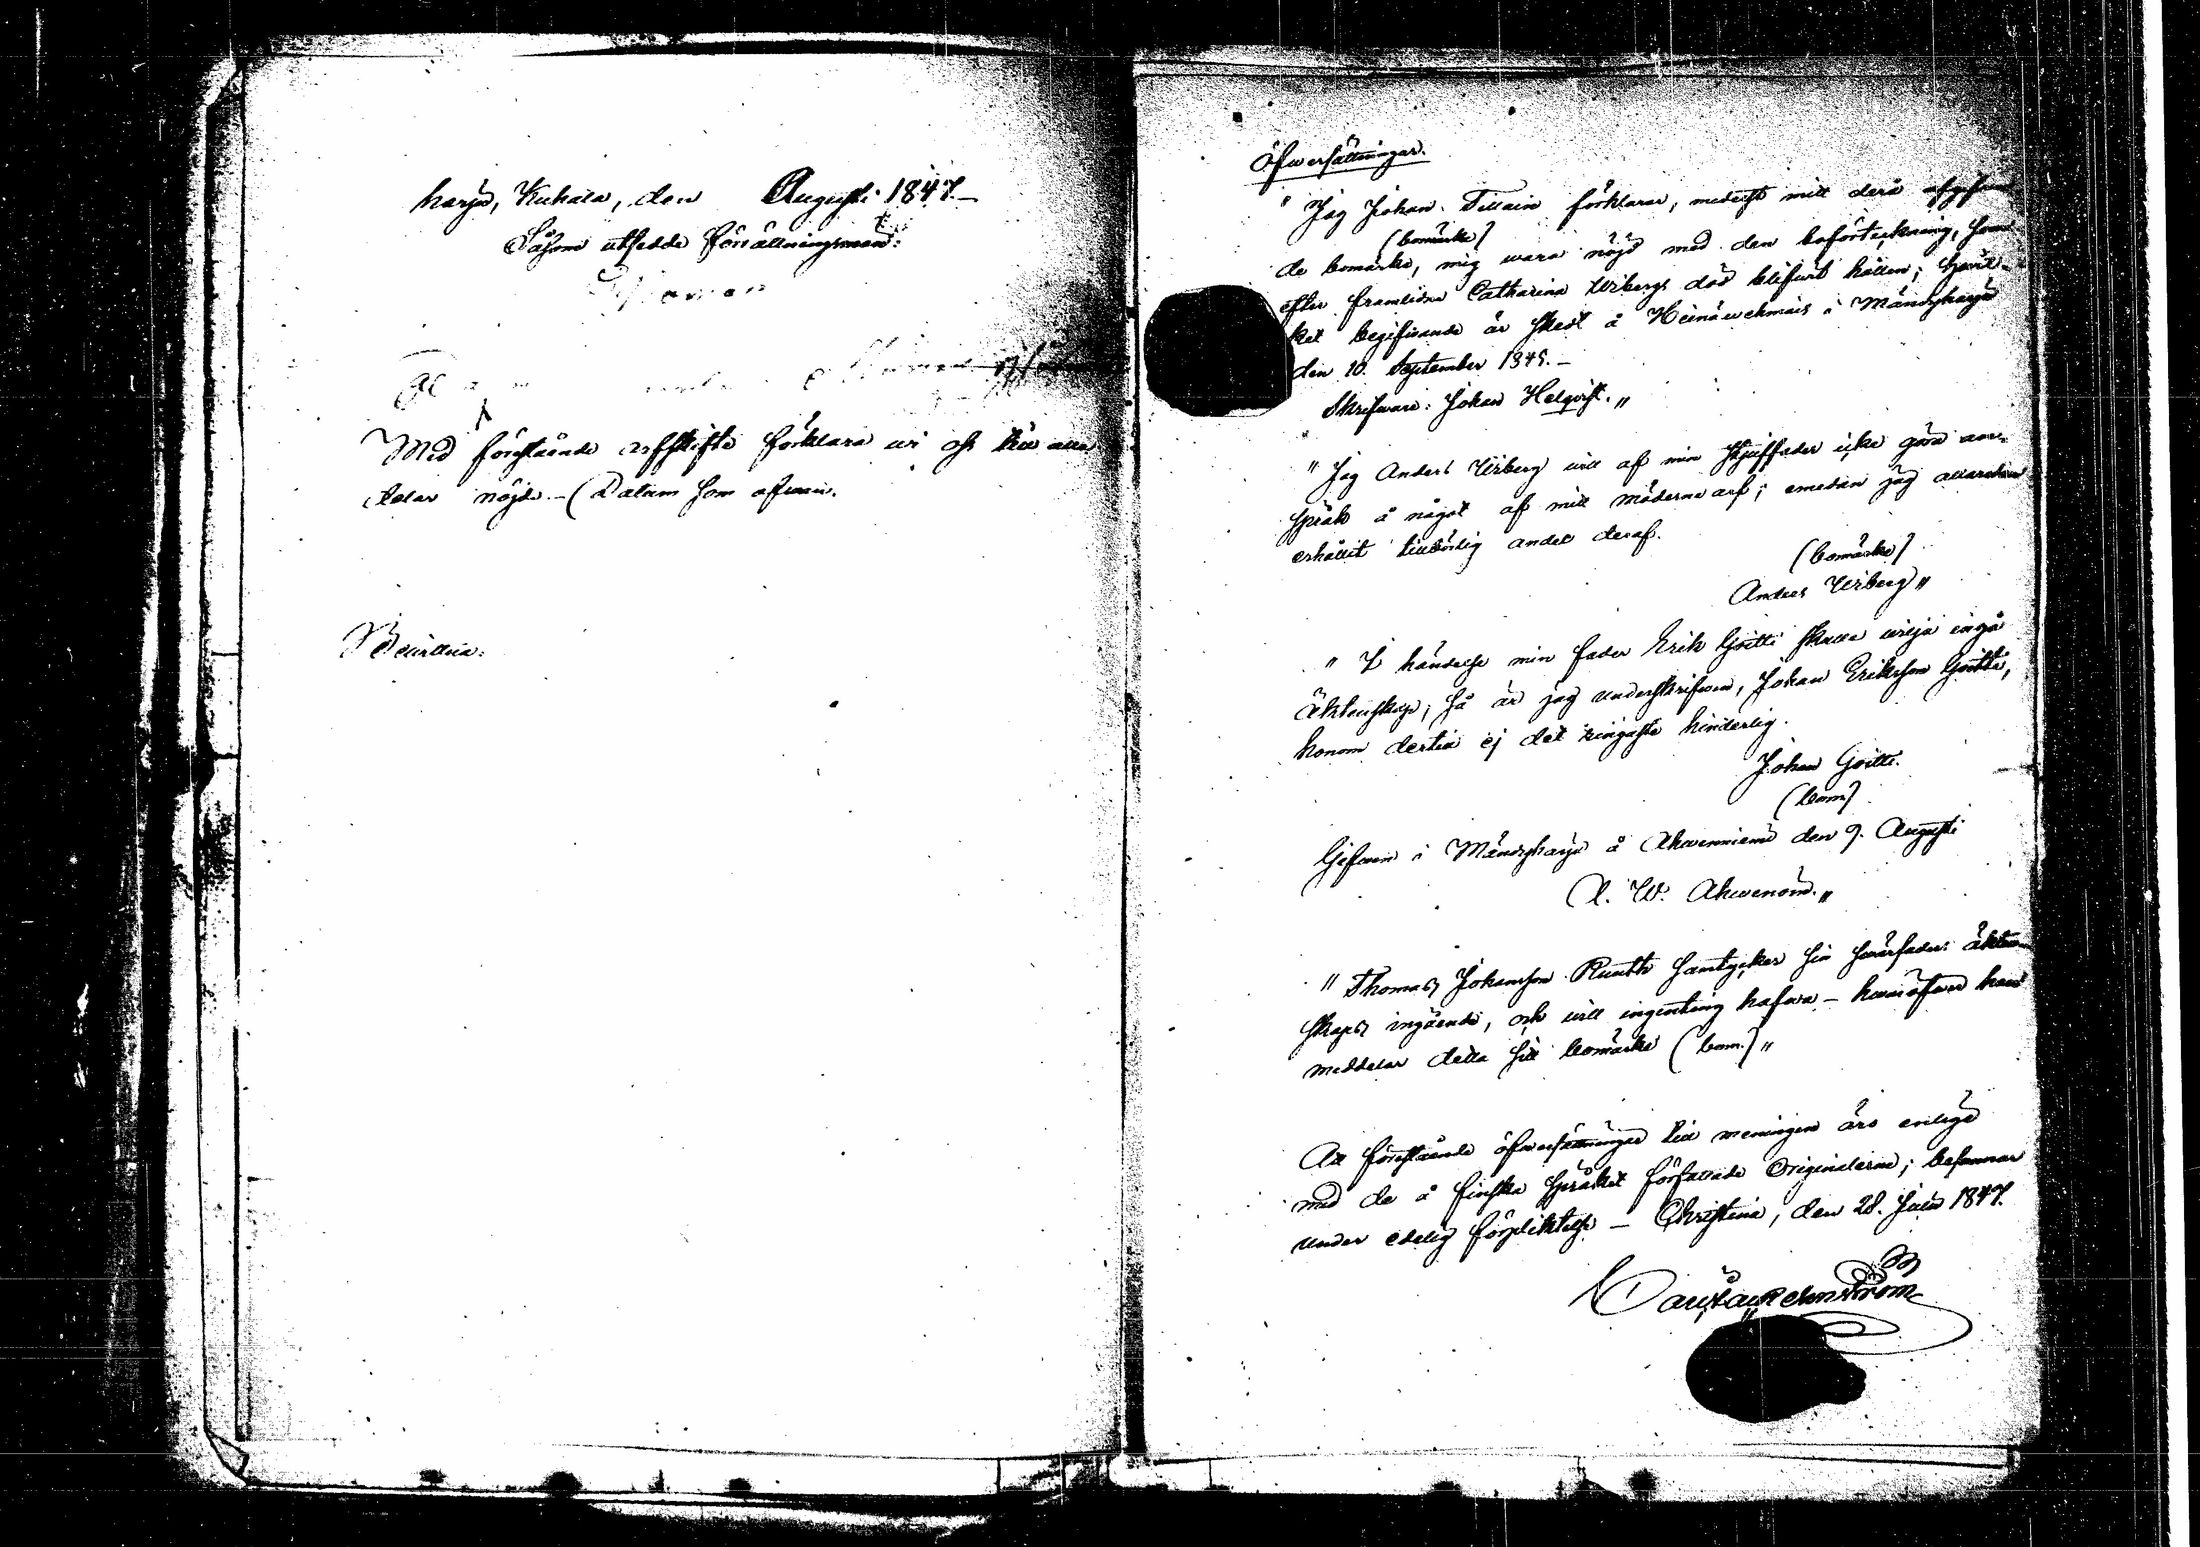 harju, Kuhala, den Augusti 1847.–
Såsom utsedde förrättningsmän:
Med förestående arfskifte förklara wi oss till alla
delar nöjde. – Datum som ofwan.
Bewittna:
Öfwersättningar.
" Jag Johan Tellain förklarar, medelst mitt derå afgifwan-
de bomärke, (bomärke) mig wara nöjd med den boförteckning, som
efter framlidna Catharina Wibergs död blifwit hållen; hwil-
ket begifwande är skedt å Heinäwehmais i Mändyharju
den 10. September 1845. –
Skrifware: Johan Helqvist. "
" Jag Anders Wiberg will af min styffader icke göra an-
språk å något af mitt möderne arf; emedan jag allaredan
erhållit tillbörlig andel deraf.
(bomärke)
Anders Wiberg "
" I händelse min fader Erik Gritti skulle wilja ingå
äktenskap, så är jag underskrifwen, Johan Eriksson Gritti,
honom dertill ej det ringaste hinderlig.
Johan Gritti.
(bom.)
Gifwen i Mändyharju å Ahwenniemi den 9. Augusti
A. W. Ahwenoin. "
" Thomas Johansson Ruuth samtycker sin swärfaders äkten-
skaps ingående, och will ingenting hafwa – hwaröfwer han
meddelar detta sitt bomärke (bom.) "
Att förestående öfwersättningar till meningen äro enliga
med de å finska språket författade Originalerne; besannar
under edelig förpliktelse – Christina, den 28. Juli 1847.